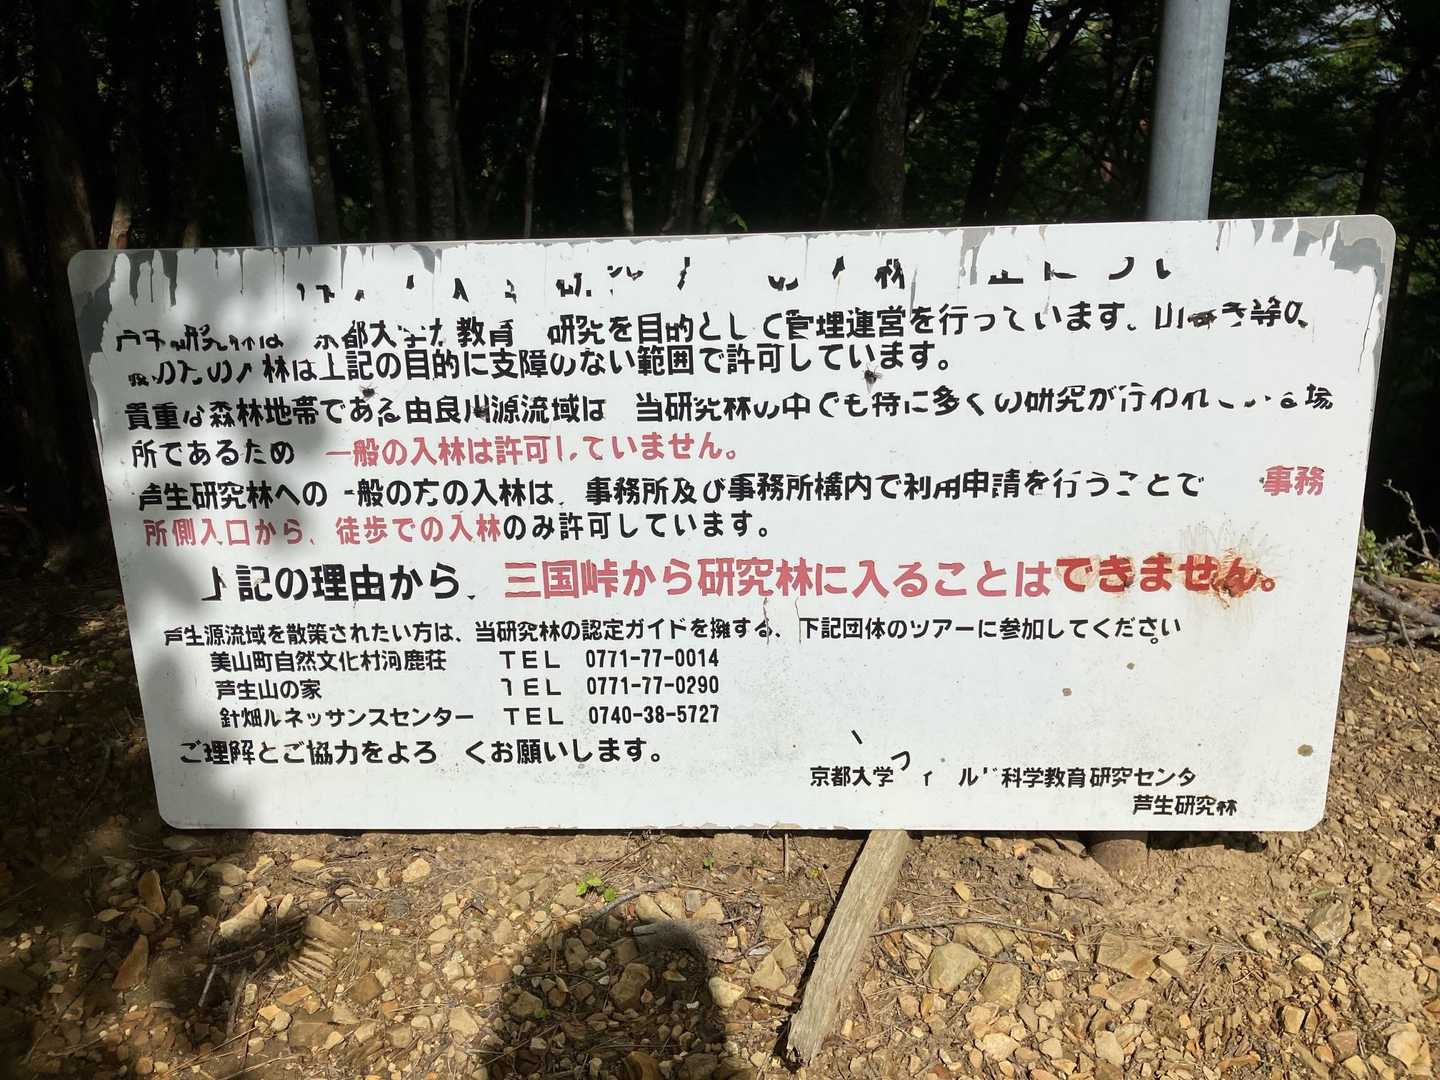 研究林は 京都大学が教育 研究を目的として管理運営を行っています。山歩き等の
林は上記の目的に支障のない範囲で許可しています。
貴重な森林地帯である由良川源流域は 当研究林の中でも特に多くの研究が行われている場
所であるため 一般の入林は許可していません。
芦生研究林への一般の方の入林は、事務所及び事務所構内で利用申請を行うことで 事務
所側入口から、徒歩での入林のみ許可しています。
上記の理由から、三国峠から研究林に入ることはできません。
芦生源流域を散策されたい方は、当研究林の認定ガイドを擁する、下記団体のツアーに参加してください。
美山町自然文化村河鹿荘 TEL 0771-77-0014
芦生山の家 TEL 0771-77-0290
針畑ルネッサンスセンター TEL 0740-38-5727
ご理解とご協力をよろ くお願いします。
京都大学フィールド科学教育研究センタ
芦生研究林